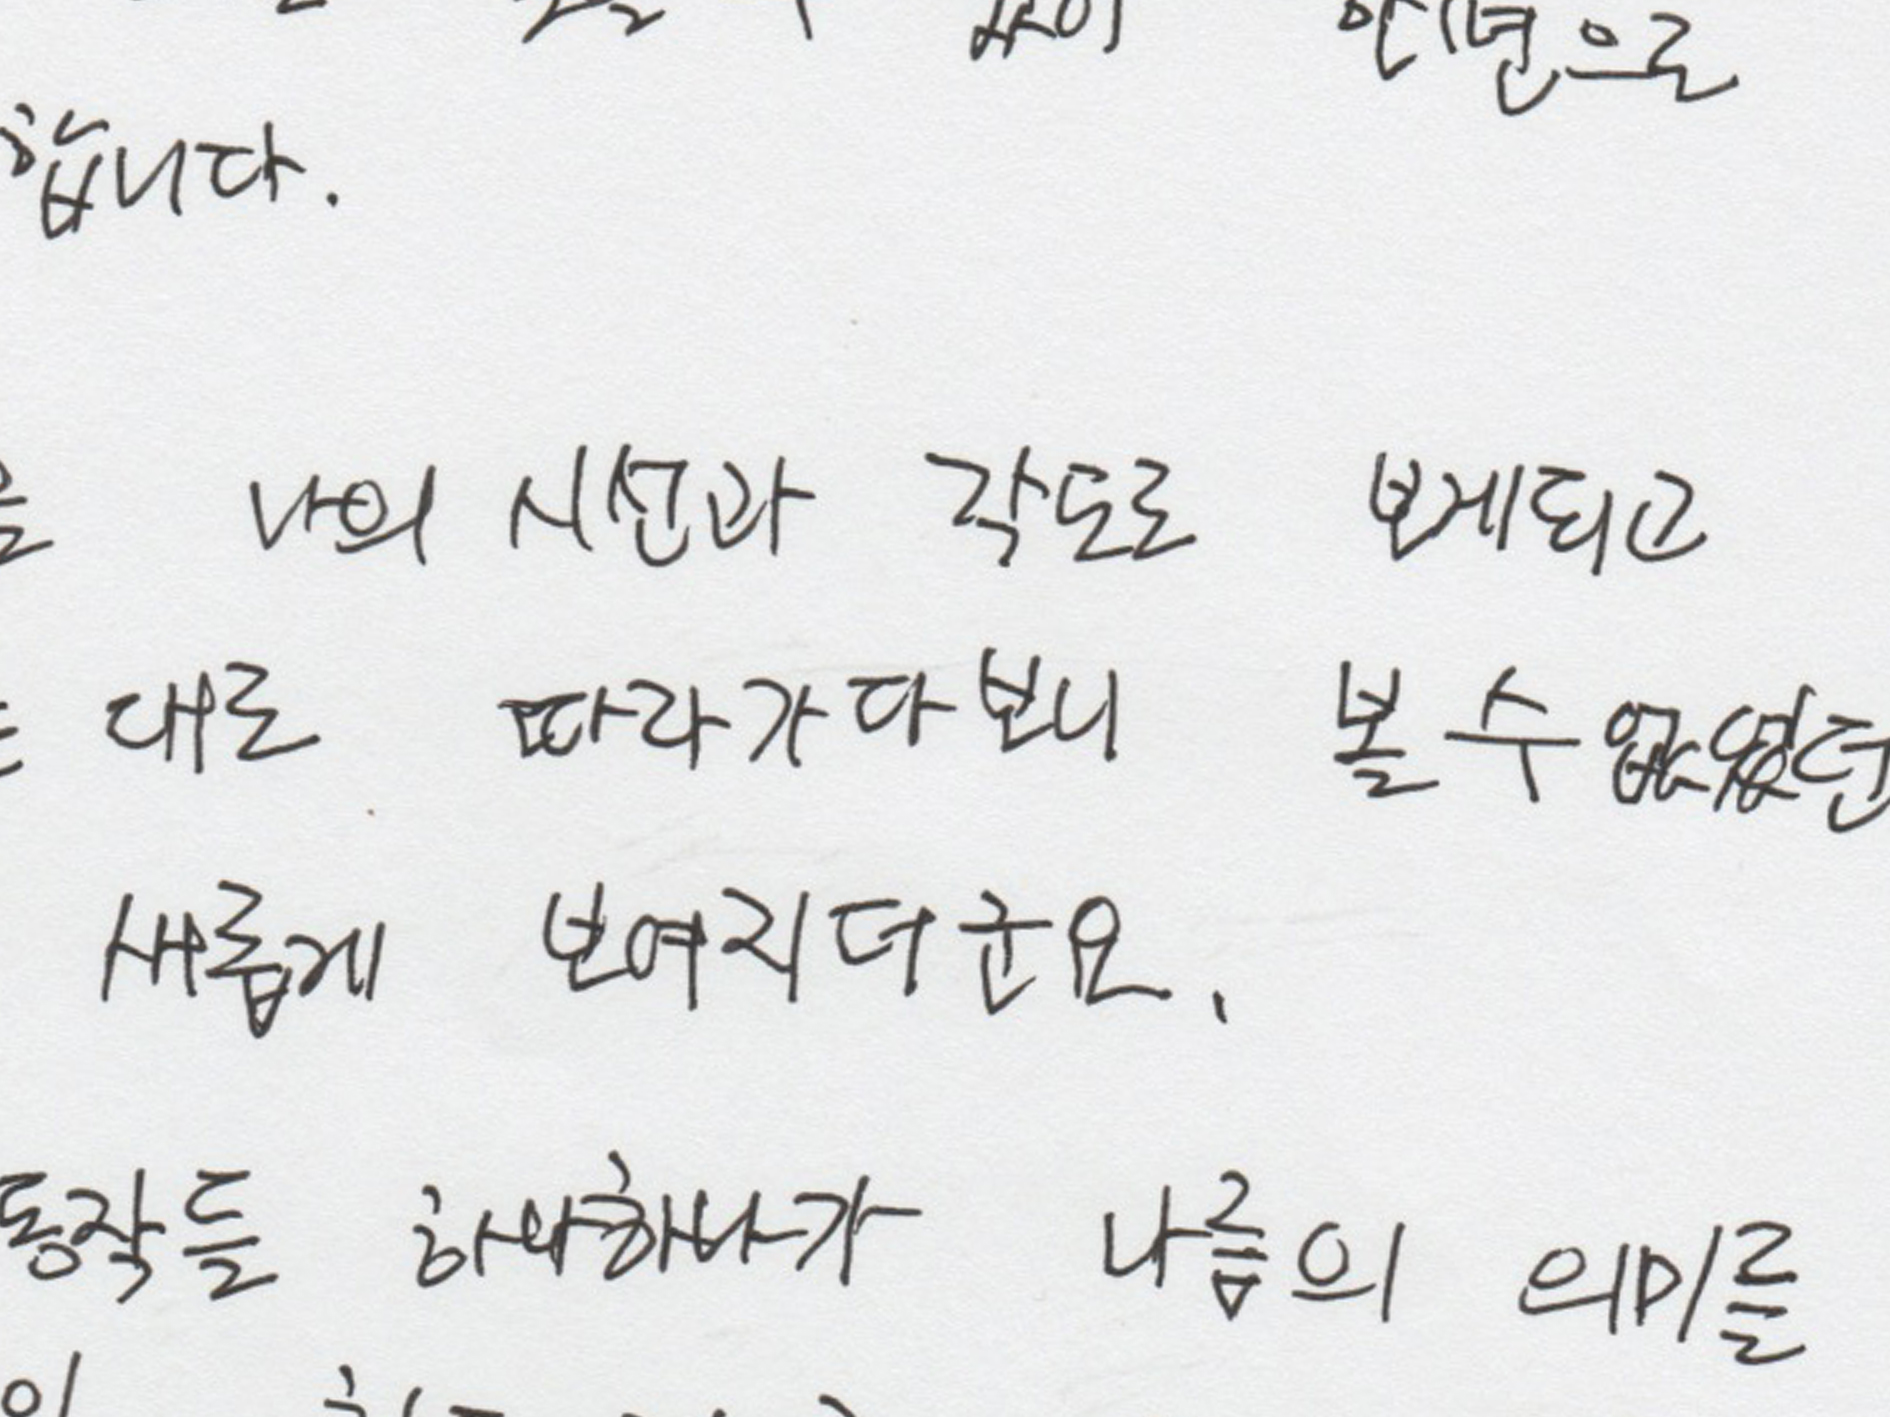 없이 한편으로
합니다.
을 나의 시선과 각도로 보게되고
는 대로 따라가다보니 볼 수 없었던
새롭게 보여지더군요.
동작들 하나하나가 나름의 의미를